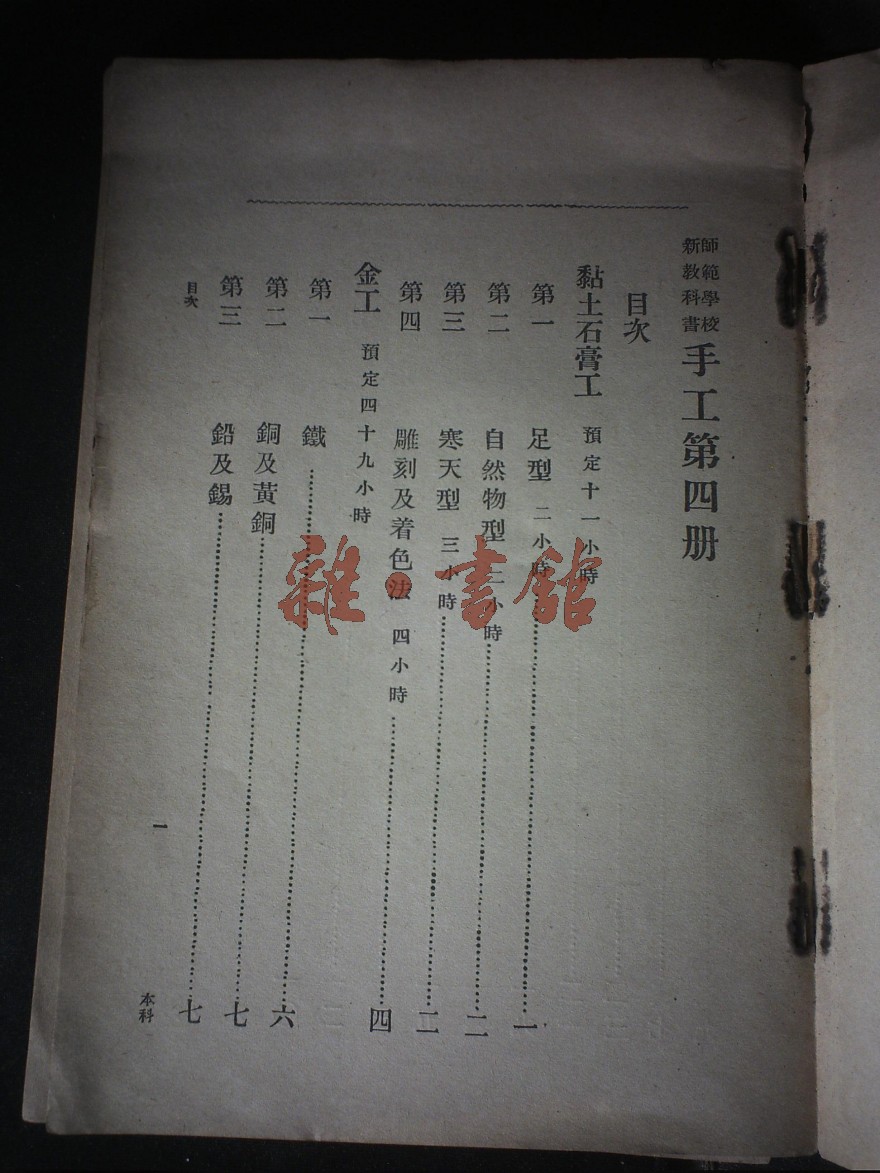 師範學校
新教科書
手工第四册
目次
黏土石膏工 預定十一小時
第一 足型 二小時……一
第二 自然物型 二小時……二
第三 寒天型 三小時……二
第四 雕刻及着色法 四小時……四
金工 預定四十九小時
第一 鐵……六
第二 銅及黃銅……七
第三 鉛及錫……七
目次
一
本科一
雜·書館